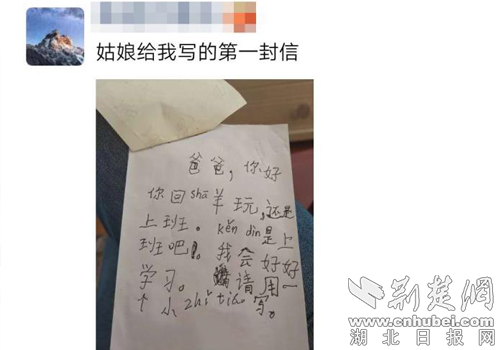 姑娘给我写的第一封信
爸爸，你好
你回shā羊玩，还是
上班。kěn din是上
班吧！。我会好好
学习。请用一
个小zhǐ tiáo写。
荆楚网
www.cnhubei.com
湖北日报网